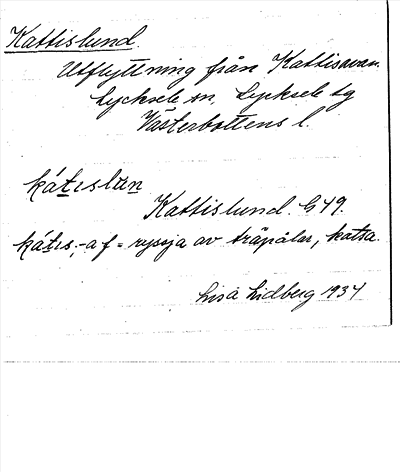 Kattislund.
Utflyttning från Kattisavan.
Lycksele sn, Lycksele tg
Västerbottens l.
kátɩslun
Kattislund. G49.
kátɩs, -a f = ryssja av träpålar, katsa.
Lisa Lidberg 1934